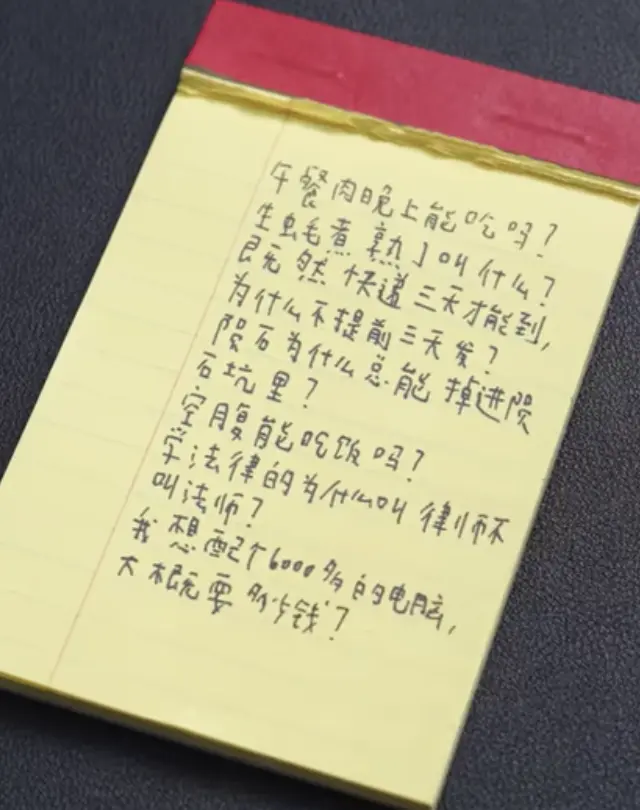 午餐肉晚上能吃吗?
生虫毛煮熟了叫什么?
既然快递三天才能到,
为什么不提前三天发?
陨石为什么总能掉进陨
石坑里?
空腹能吃饭吗?
学法律的为什么叫律师不
叫法师?
我想配个6000多的电脑,
大概要多少钱?